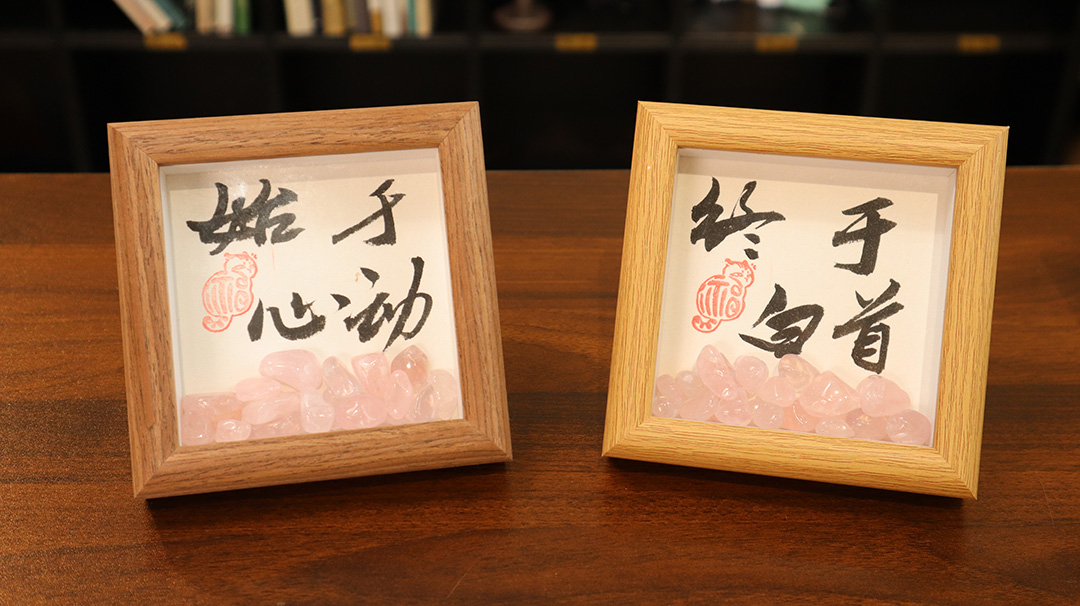 始于
心动
终于
白首